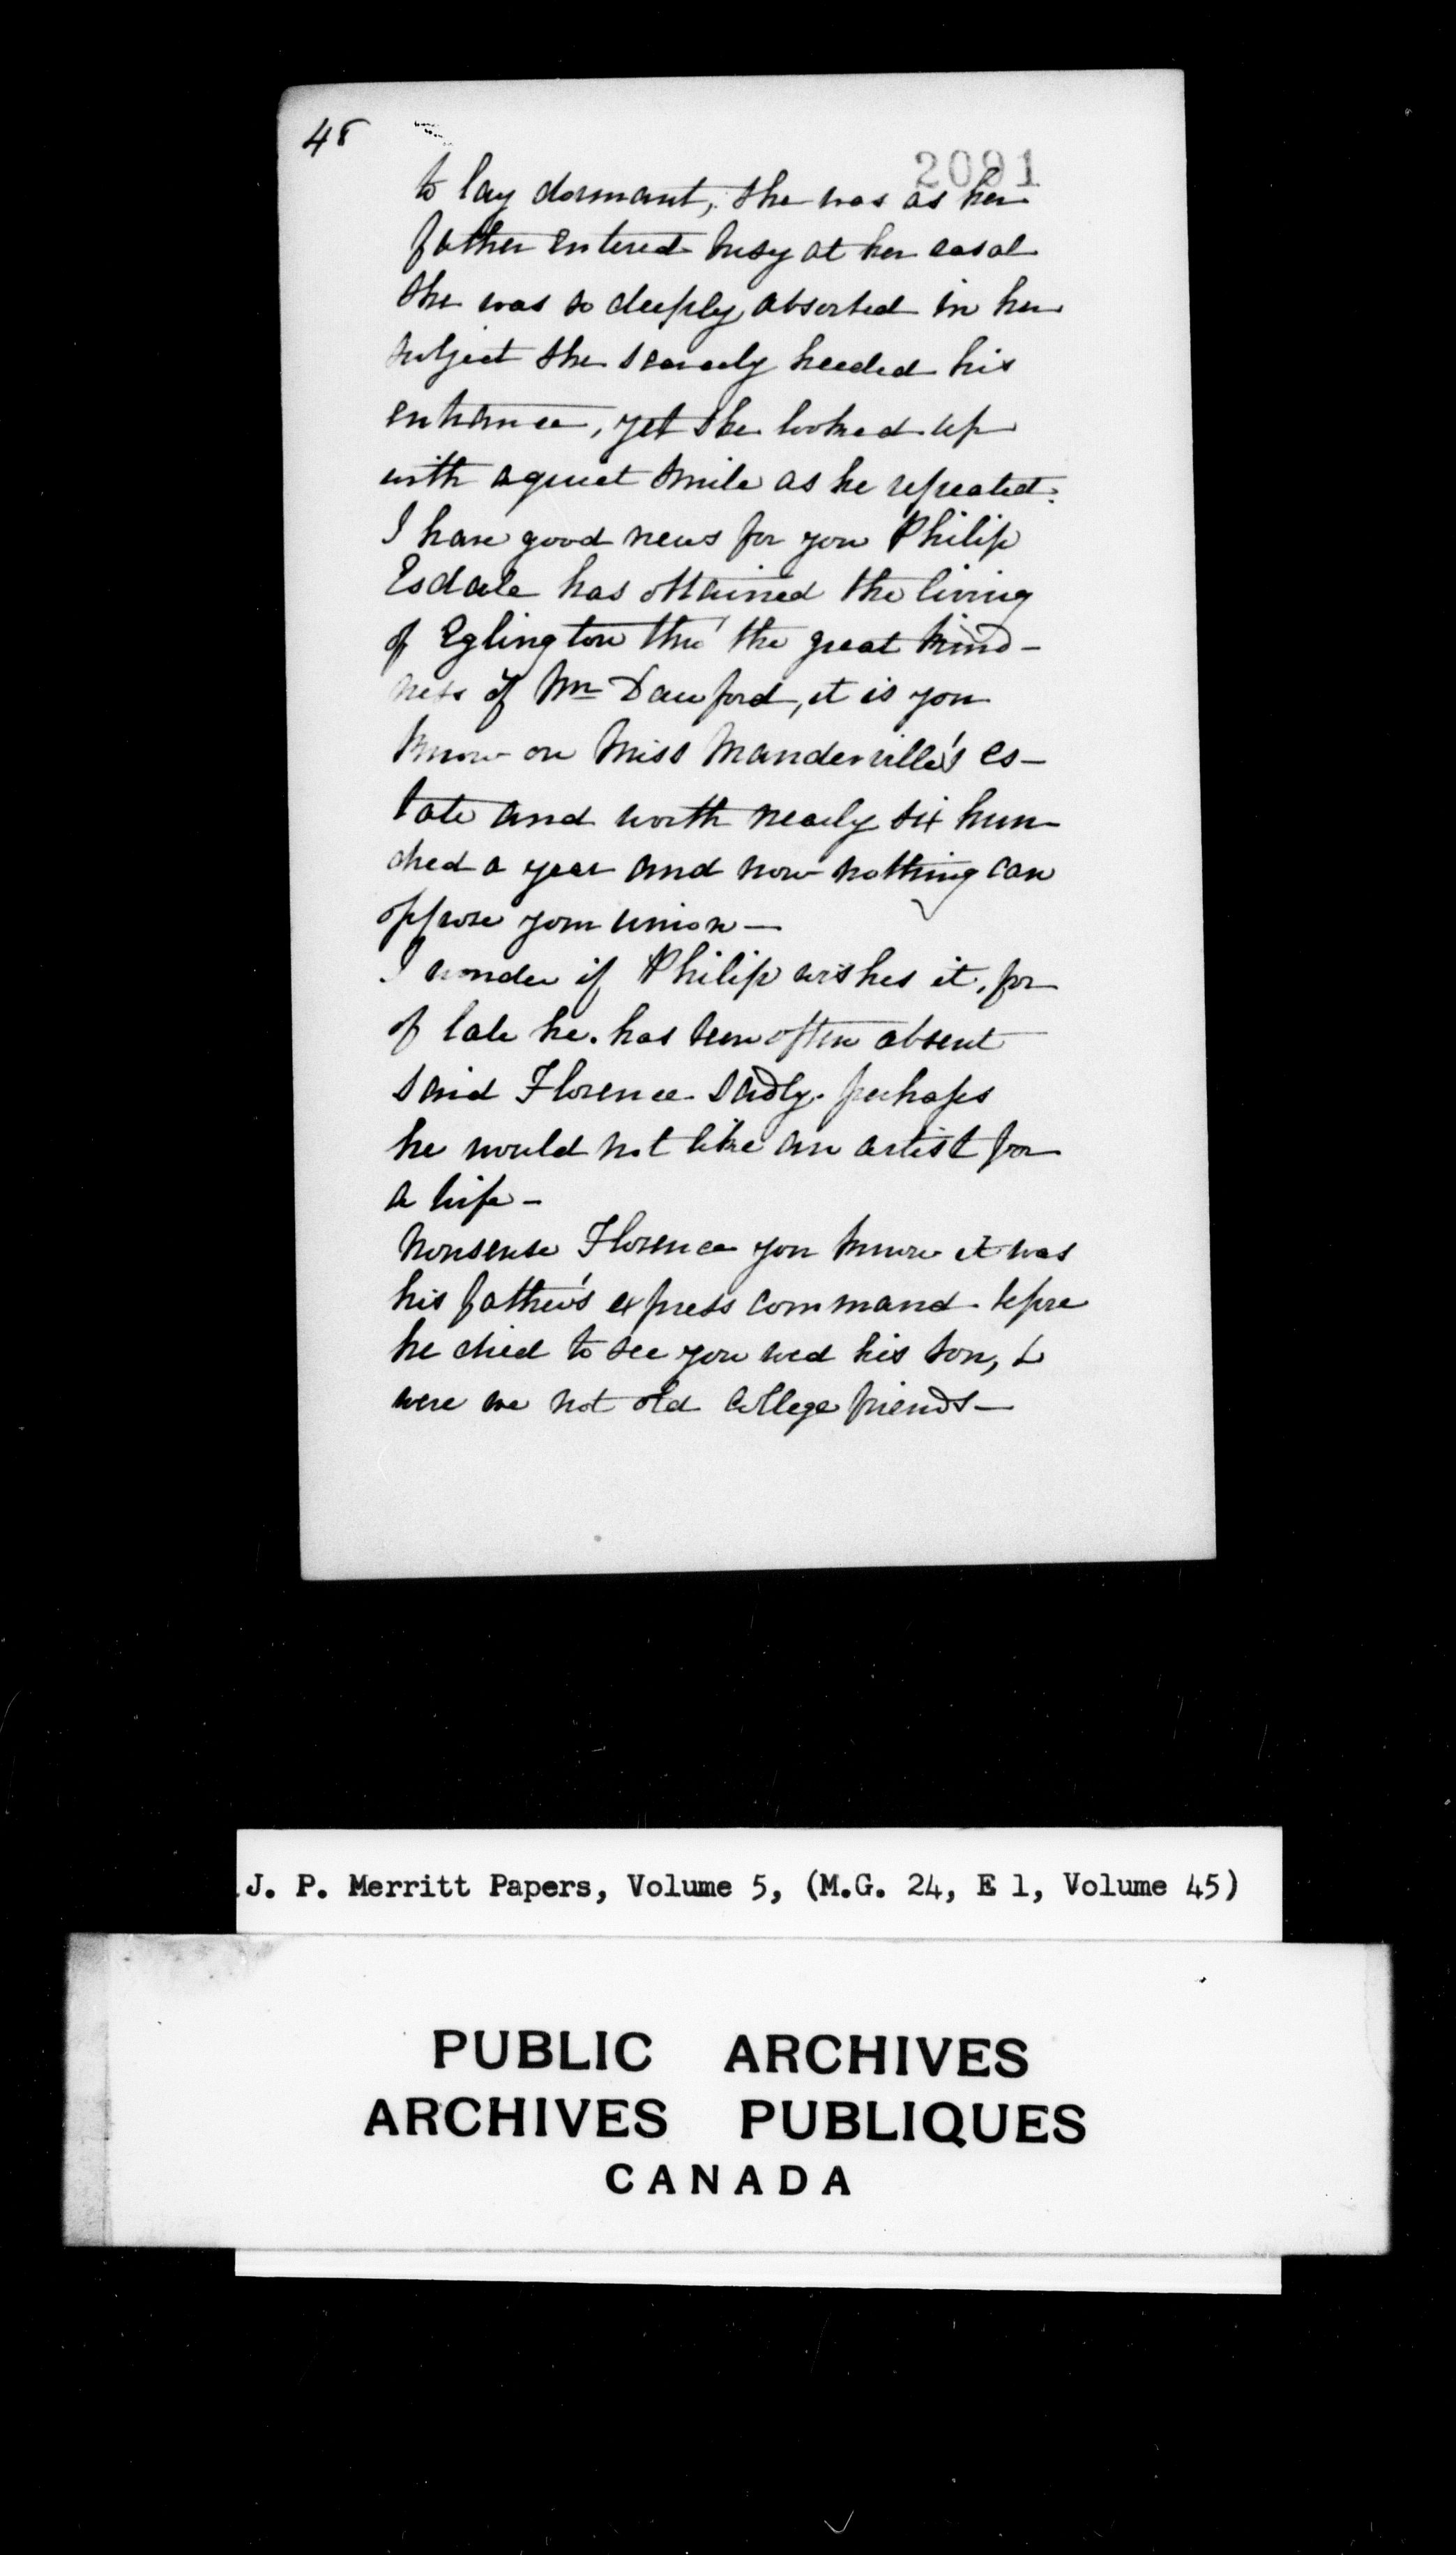 48
2091
to lay dormant, she was as her
father entered busy at her easal
she was so deeply absorbed in her
subject she scarcely heeded his
entrance, yet she looked up
with a quiet smile as he repeated.
I have good news for you Philip
Esdale has obtained the living
of Eglington thro' the great kind-
ness of Mr Dawford, it is you
know on Miss Manderville's es-
tate and worth nearly six hun-
dred a year and now nothing can
oppose your union—
I wonder if Philip wishes it, for
of late he has been often absent
said Florence sadly. perhaps
he would not like an artist for
a wife-
Nonsense Florence you know it was
his father's express command before
he died to see you wed his son, &
were we not old College friends—
J. P. Merritt Papers, Volume 5, (M.G. 24, E 1, Volume 45)
PUBLIC ARCHIVES
ARCHIVES PUBLIQUES
CANADA